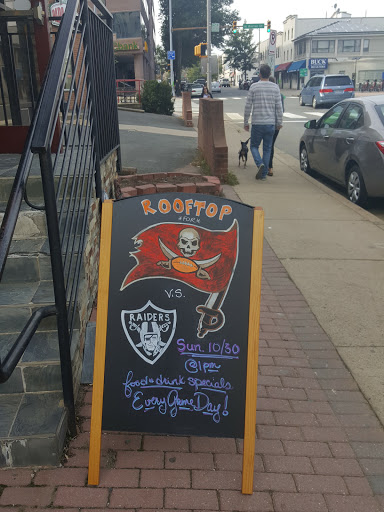 ROOFTOP
*FOR*
V.S.
RAIDERS
Sun. 10/30
@1pm
food & drink specials
Every Game Day!